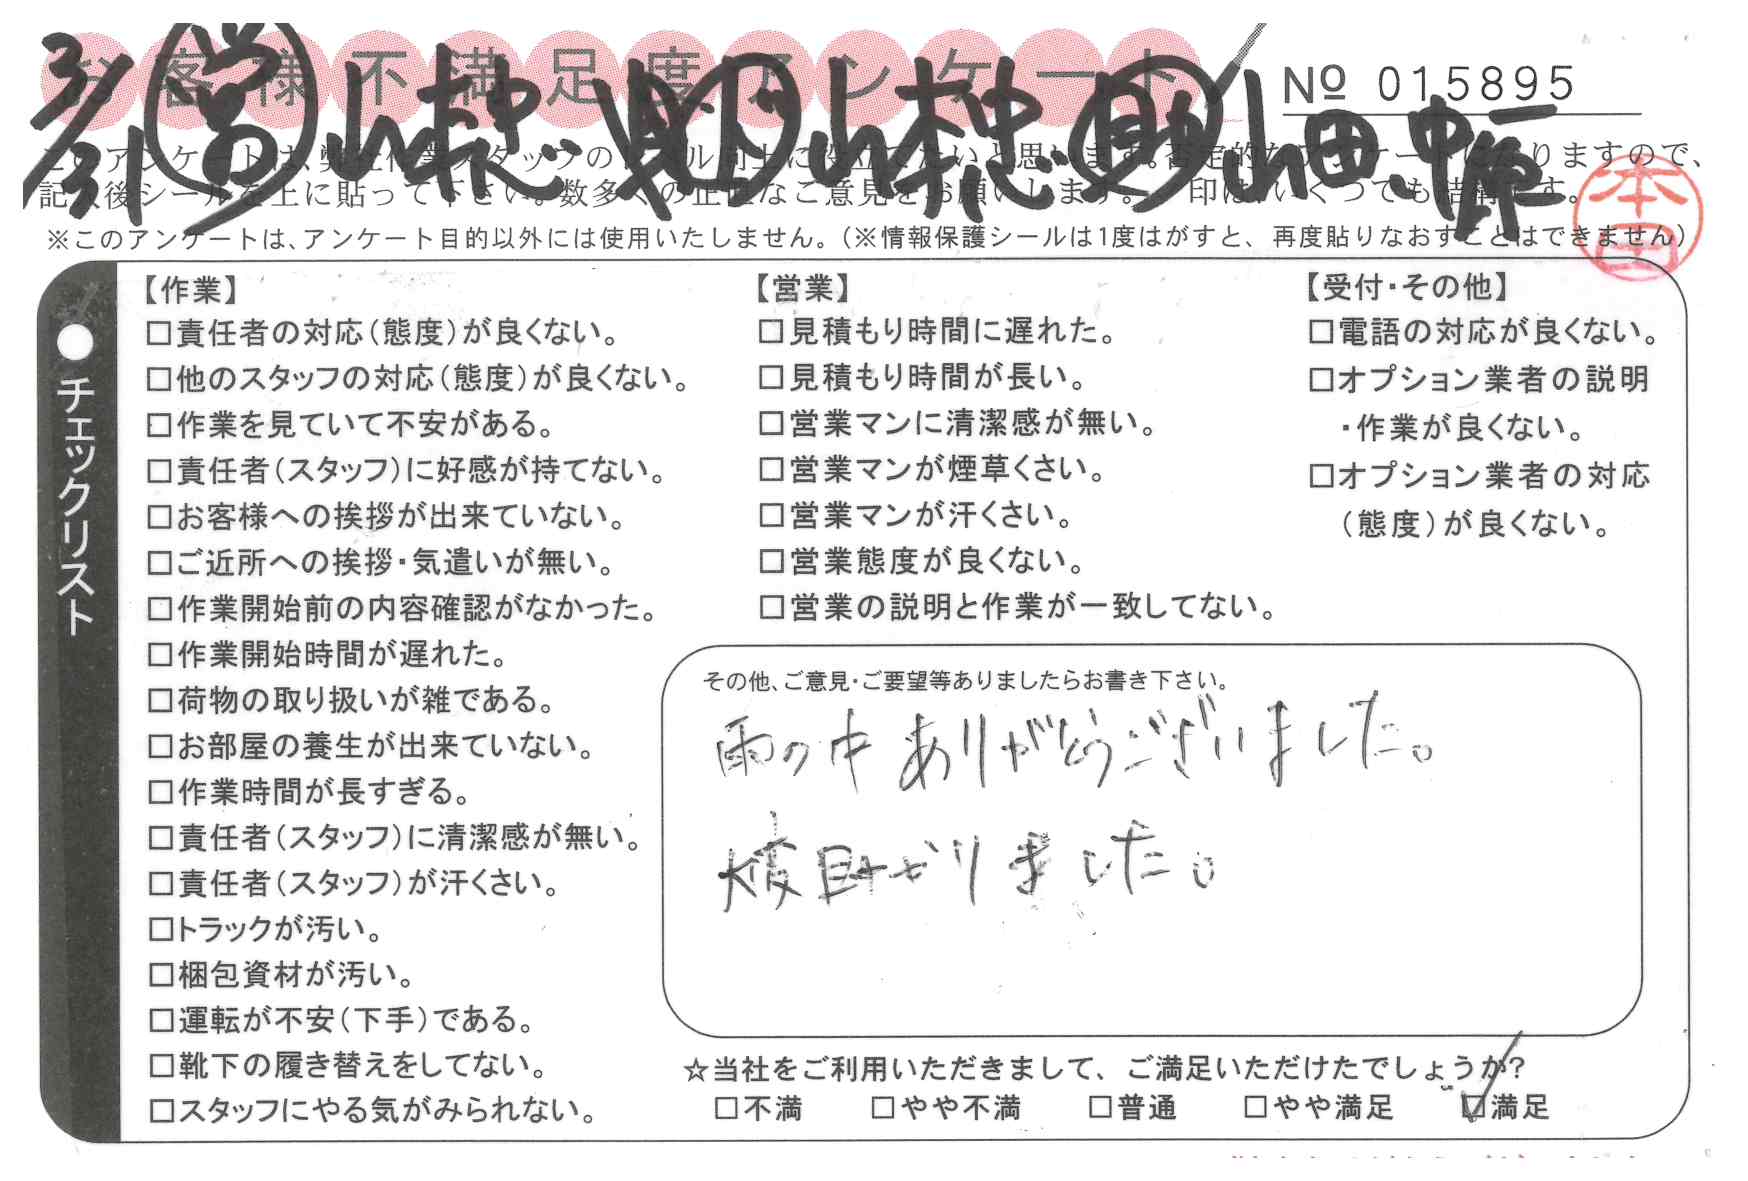 お客様不満足度アンケート
№ 015895
3/31 ㊢山
※このアンケートは、アンケート目的以外には使用いたしません。（※情報保護シールは1度はがすと、再度貼りなおすことはできません）
本田
●チェックリスト
【作業】
□責任者の対応（態度）が良くない。
□他のスタッフの対応（態度）が良くない。
□作業を見ていて不安がある。
□責任者（スタッフ）に好感が持てない。
□お客様への挨拶が出来ていない。
□ご近所への挨拶・気遣いが無い。
□作業開始前の内容確認がなかった。
□作業開始時間が遅れた。
□荷物の取り扱いが雑である。
□お部屋の養生が出来ていない。
□作業時間が長すぎる。
□責任者（スタッフ）に清潔感が無い。
□責任者（スタッフ）が汗くさい。
□トラックが汚い。
□梱包資材が汚い。
□運転が不安（下手）である。
□靴下の履き替えをしてない。
□スタッフにやる気がみられない。
【営業】
□見積もり時間に遅れた。
□見積もり時間が長い。
□営業マンに清潔感が無い。
□営業マンが煙草くさい。
□営業マンが汗くさい。
□営業態度が良くない。
□営業の説明と作業が一致してない。
【受付・その他】
□電話の対応が良くない。
□オプション業者の説明
・作業が良くない。
□オプション業者の対応
（態度）が良くない。
その他、ご意見・ご要望等ありましたらお書き下さい。
雨の中ありがとうございました。
大変助かりました。
☆当社をご利用いただきまして、ご満足いただけたでしょうか？
□不満 □やや不満 □普通 □やや満足 ☑満足